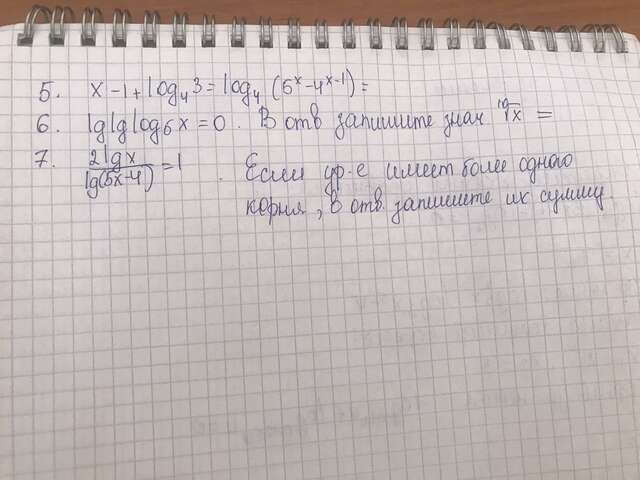 5. x-1+log₄3=log₄(5ˣ-4ˣ⁻¹)=
6. lg lg log₅x=0. В отв запишите знач ¹⁰√x =
7. 2lgx/lg(5x-4)=1. Если ур-е имеет более одного
корня, в отв. запишите их сумму